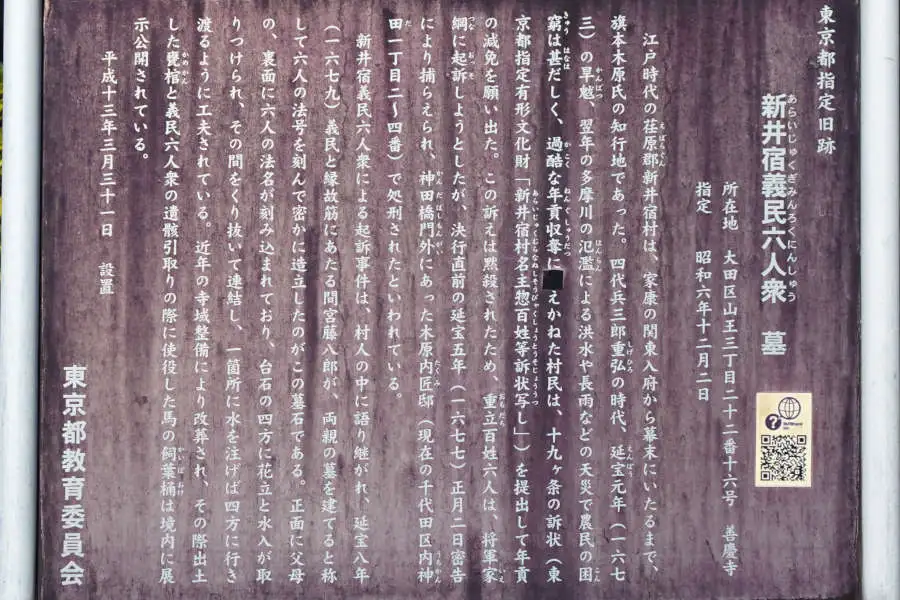 東京都指定旧跡
新井宿義民六人衆 墓
所在地 大田区山王三丁目二十二番十六号 善慶寺
指定 昭和六年十二月二日
江戸時代の荏原郡新井宿村は、家康の関東入府から幕末にいたるまで、
旗本木原氏の知行地であった。四代兵三郎重弘の時代、延宝元年（一六七
三）の旱魃、翌年の多摩川の氾濫による洪水や長雨などの天災で農民の困
窮は甚だしく、過酷な年貢収奪に えかねた村民は、十九ヶ条の訴状（東
京都指定有形文化財「新井宿村名主惣百姓等訴状写し」）を提出して年貢
の減免を願い出た。この訴えは黙殺されたため、重立百姓六人は、将軍家
綱に起訴しようとしたが、決行直前の延宝五年（一六七七）正月二日密告
により捕らえられ、神田橋門外にあった木原内匠邸（現在の千代田区内神
田一丁目二～四番）で処刑されたといわれている。
新井宿義民六人衆による起訴事件は、村人の中に語り継がれ、延宝八年
（一六七九）義民と縁故筋にあたる間宮藤八郎が、両親の墓を建てると称
して六人の法号を刻んで密かに造立したのがこの墓石である。正面に父母
の、裏面に六人の法名が刻み込まれており、台石の四方に花立と水入が取
りつけられ、その間をくり抜いて連結し、一箇所に水を注げば四方に行き
渡るように工夫されている。近年の寺域整備により改葬され、その際出土
した甕棺と義民六人衆の遺骸引取りの際に使役した馬の飼葉桶は境内に展
示公開されている。
平成十三年三月三十一日 設置
東京都教育委員会